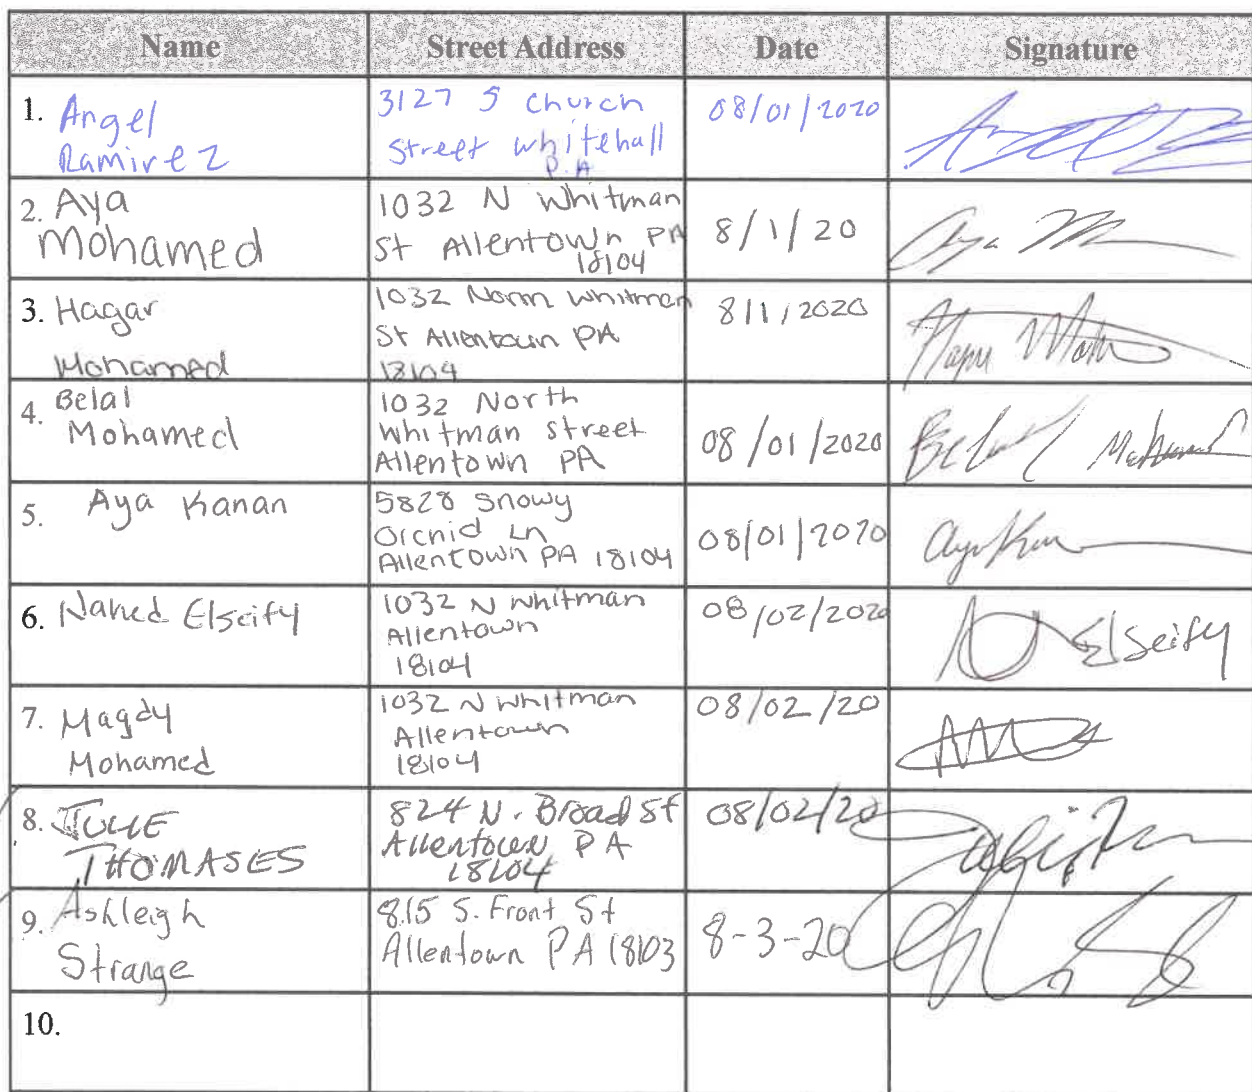 Name Street Address Date Signature
1. Angel Ramirez 3127 S Church Street Whitehall P.A 08/01/2020
2. Aya Mohamed 1032 N Whitman St Allentown PA 18104 8/1/20 Aya M
3. Hagar Mohamed 1032 North Whitman St Allentown PA 18104 8/1/2020
4. Belal Mohamed 1032 North Whitman Street Allentown PA 08/01/2020 Belal Mohamed
5. Aya Kanan 5828 Snowy Orchid Ln Allentown PA 18104 08/01/2020
6. Nahed Elseify 1032 N Whitman Allentown 18104 08/02/2020 Elseify
7. Magdy Mohamed 1032 N Whitman Allentown 18104 08/02/20
8. JULIE THOMASES 824 N. Broad St Allentown PA 18104 08/02/20
9. Ashleigh Strange 815 S. Front St Allentown PA 18103 8-3-20
10.